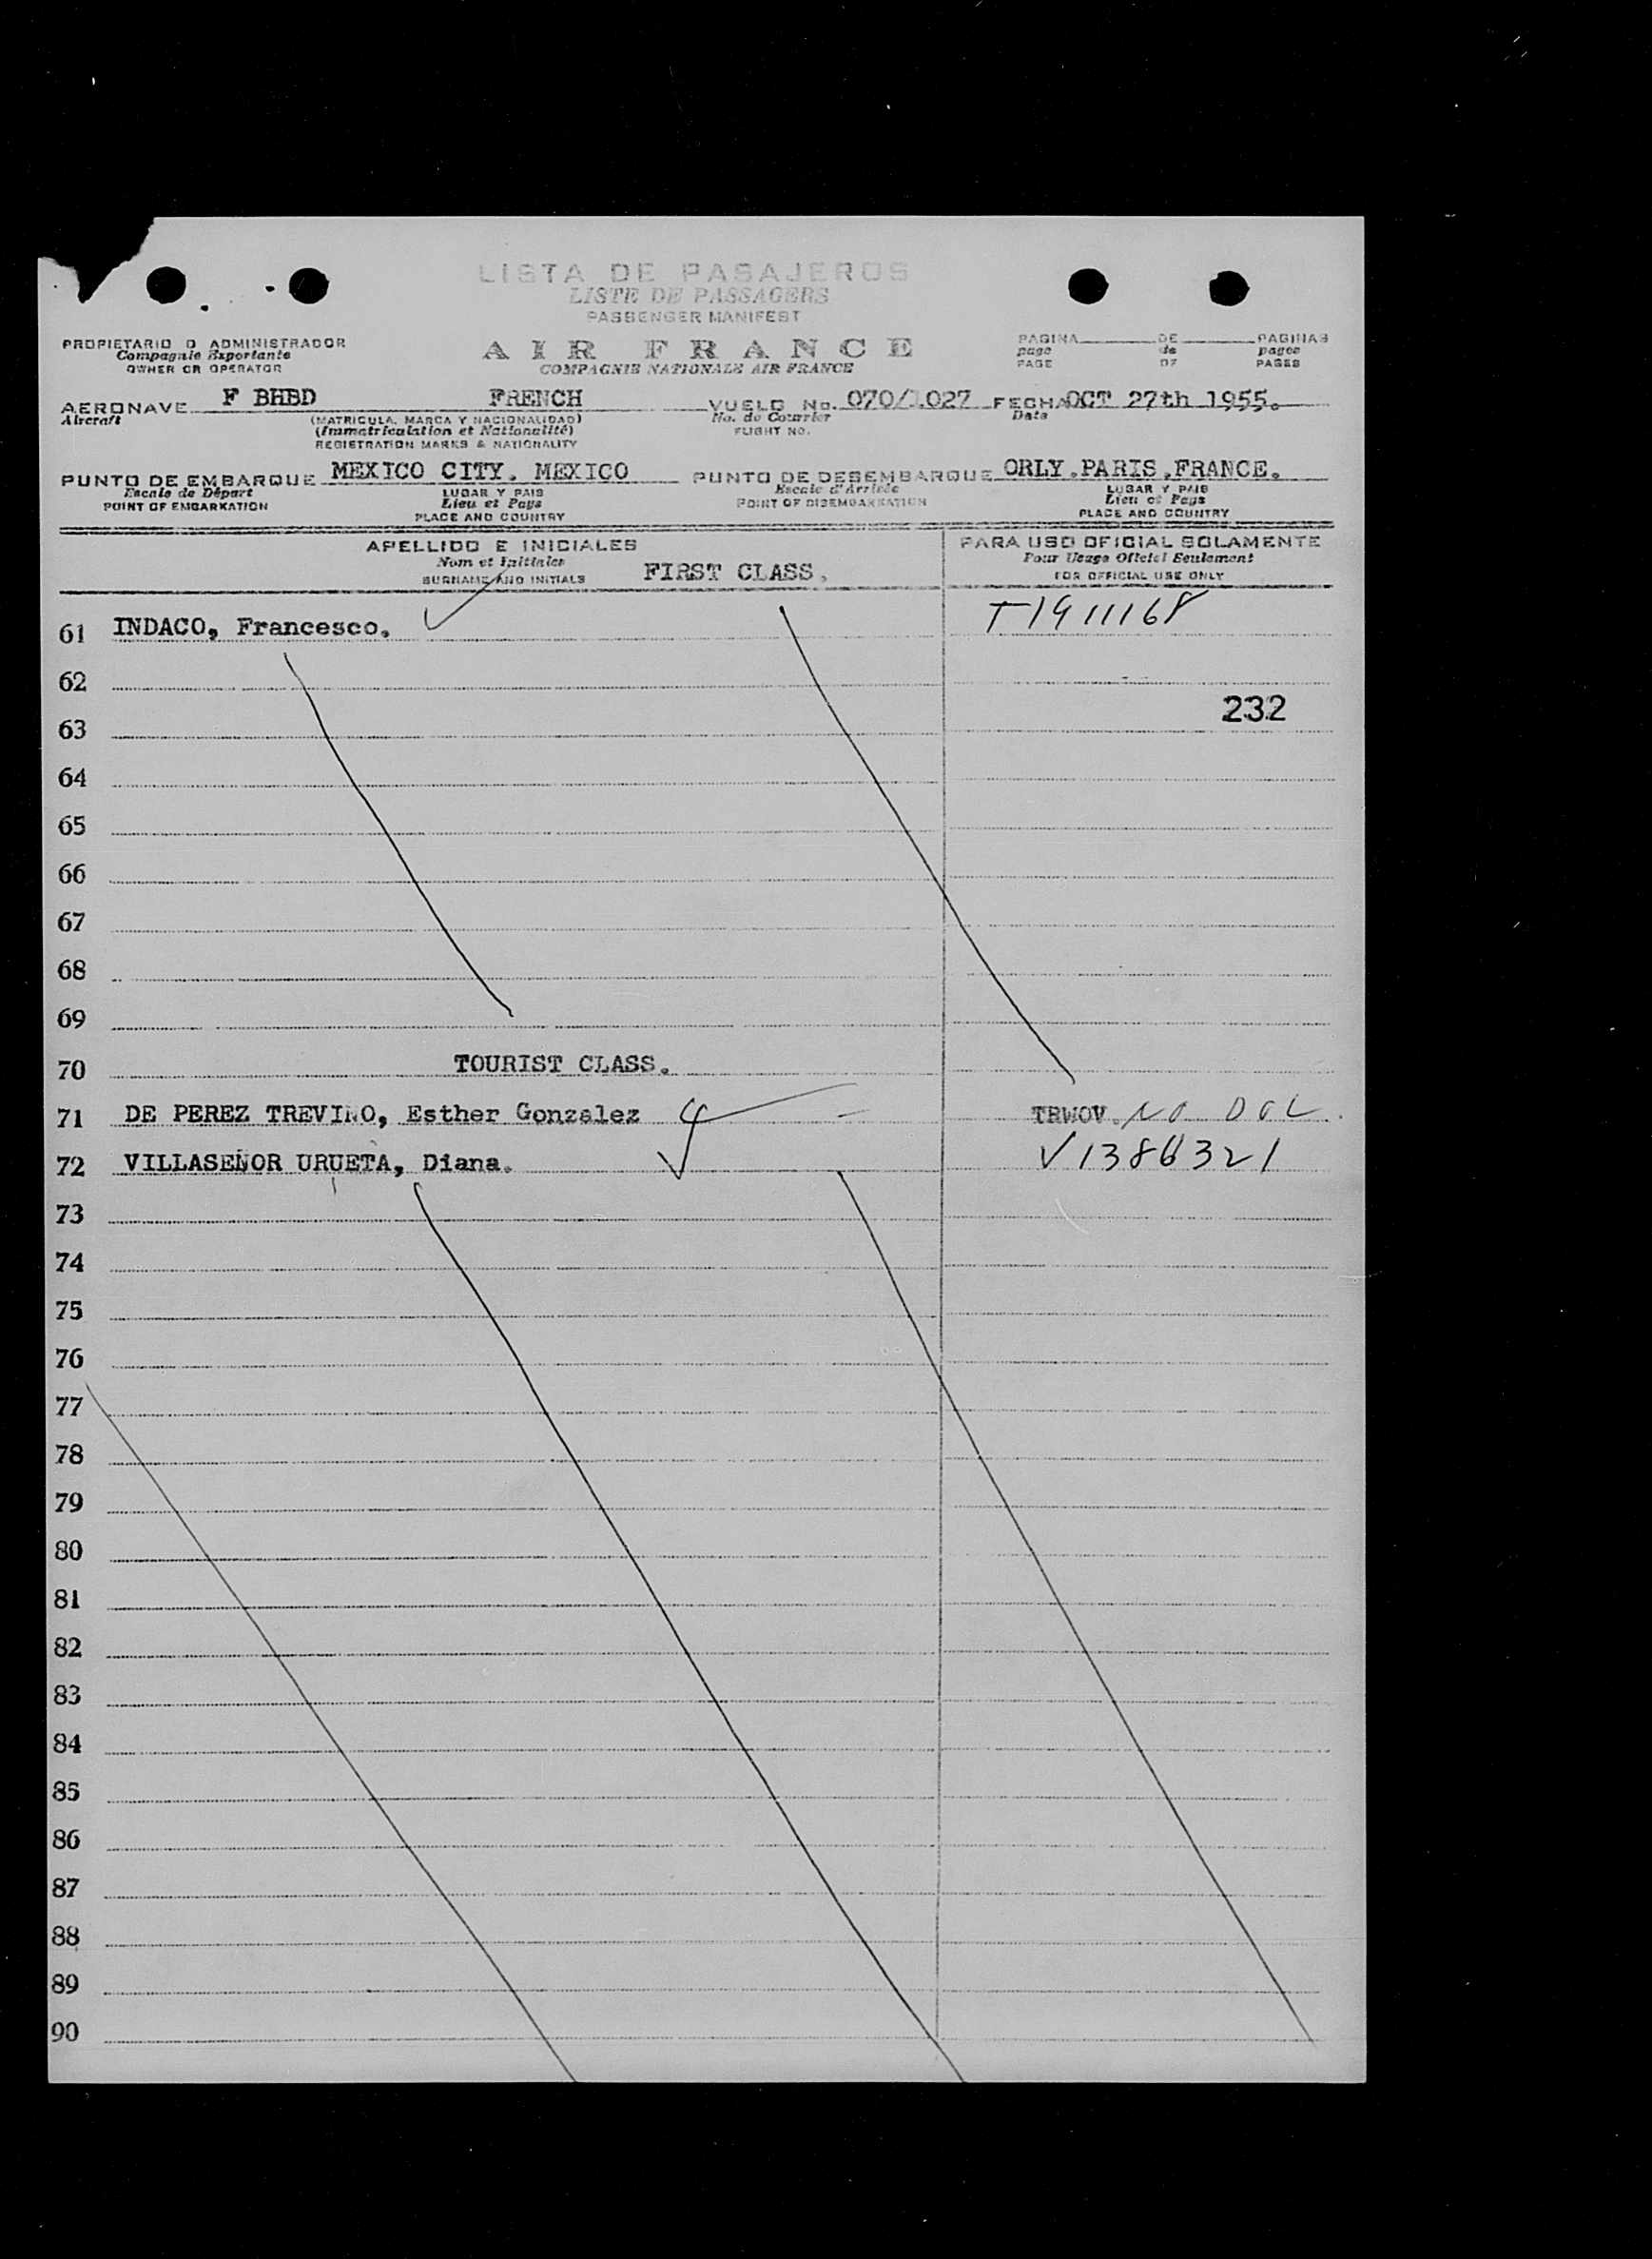 LISTA DE PASAJEROS
LISTE DE PASSAGERS
PASSENGER MANIFEST
PROPIETARIO O ADMINISTRADOR
Compagnie Exportante
OWNER OR OPERATOR
AIR FRANCE
COMPAGNIE NATIONALE AIR FRANCE
PAGINA DE PAGINAS
page de pages
PAGE OF PAGES
AERONAVE F BHBD FRENCH VUELO No. 070/1027 FECHA OCT 27th 1955.
Aircraft (MATRICULA, MARCA Y NACIONALIDAD) No. de Courrier Date
(Immatriculation et Nationalité) FLIGHT NO.
REGISTRATION MARKS & NATIONALITY
PUNTO DE EMBARQUE MEXICO CITY. MEXICO PUNTO DE DESEMBARQUE ORLY.PARIS.FRANCE.
Escale de Départ LUGAR Y PAIS Escale d'Arrivée LUGAR Y PAIS
POINT OF EMBARKATION Lieu et Pays POINT OF DISEMBARKATION Lieu et Pays
PLACE AND COUNTRY PLACE AND COUNTRY
APELLIDO E INICIALES PARA USO OFICIAL SOLAMENTE
Nom et Initiales Pour Usage Officiel Seulement
SURNAME AND INITIALS FIRST CLASS. FOR OFFICIAL USE ONLY
61 INDACO, Francesco. T-1911168
62
232
63
64
65
66
67
68
69
70 TOURIST CLASS.
71 DE PEREZ TREVIÑO, Esther Gonzalez TRWOV. NO DOC.
72 VILLASEÑOR URUETA, Diana. V1386321
73
74
75
76
77
78
79
80
81
82
83
84
85
86
87
88
89
90